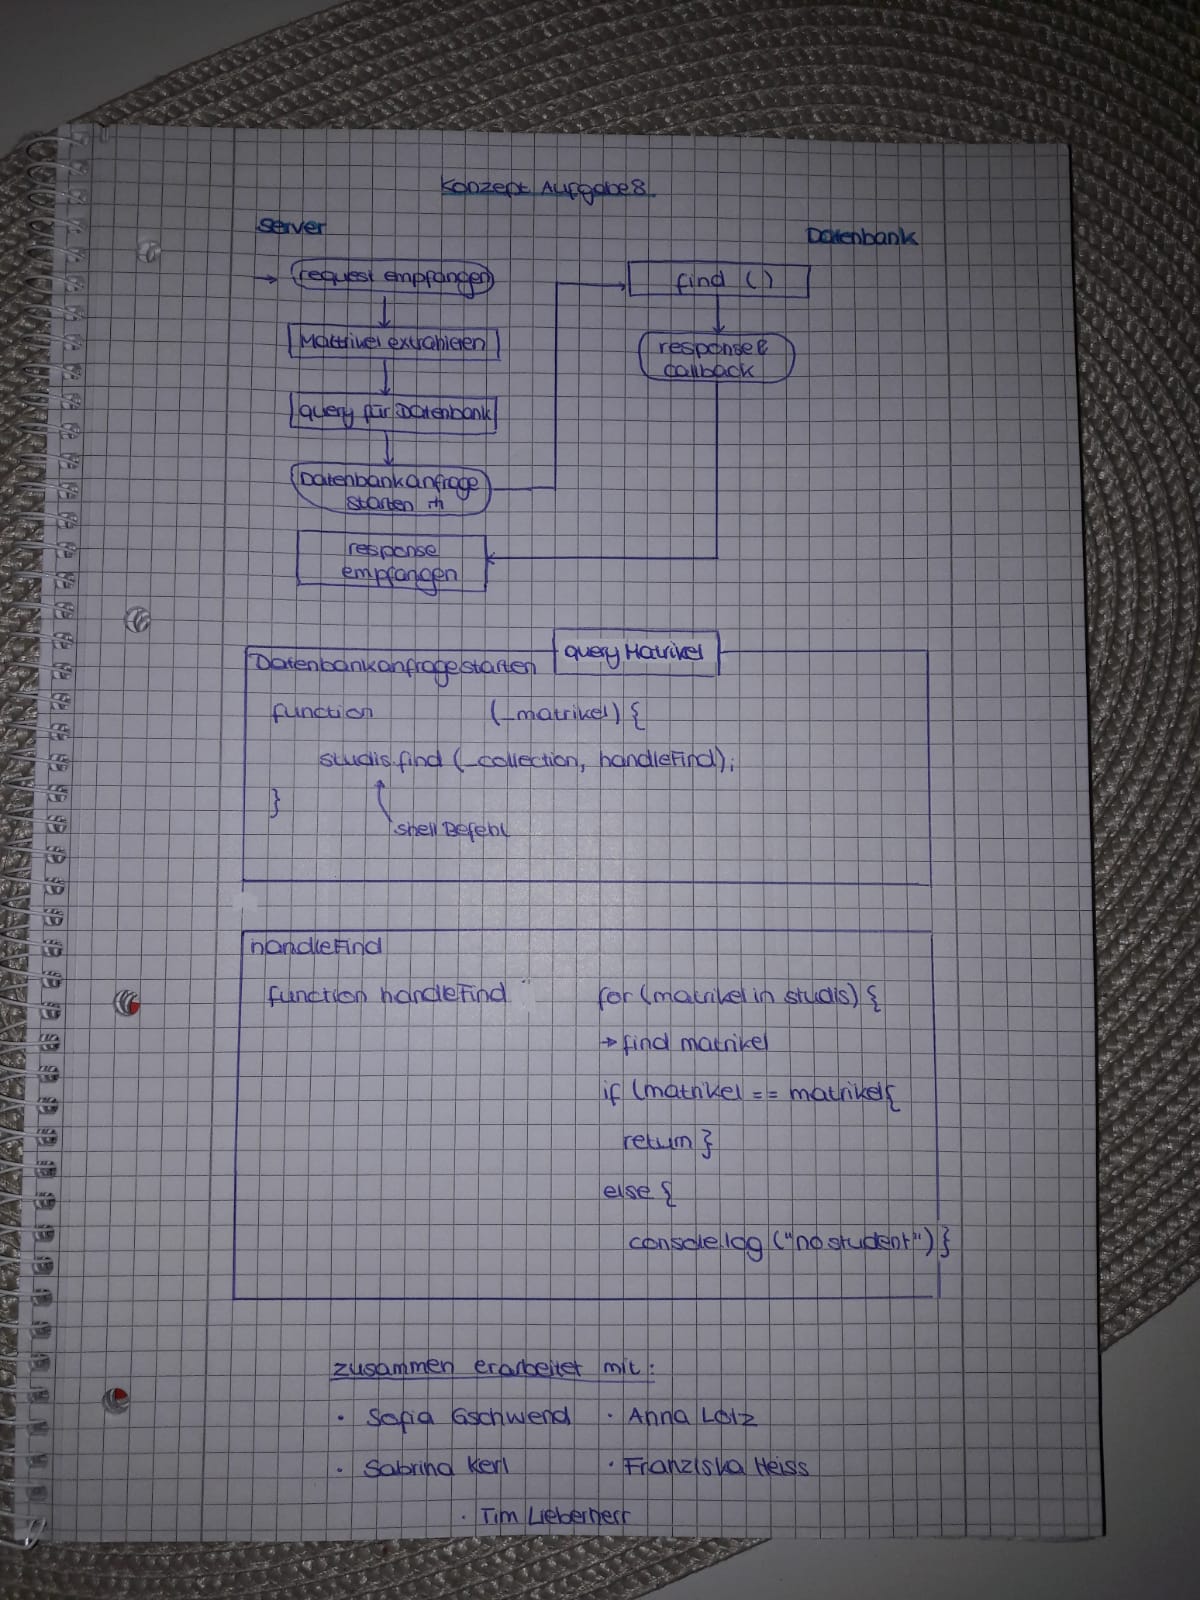 Konzept Aufgabe 8
Server
Datenbank
→ request empfangen
Matrikel extrahieren
query für Datenbank
Datenbankanfrage
starten
response
empfangen
find ()
response &
callback
Datenbankanfrage starten
query Matrikel
function (_matrikel) {
studis.find (_collection, handleFind);
}
shell Befehl
handleFind
function handleFind
for (matrikel in studis) {
→ find matrikel
if (matrikel == matrikel{
return }
else {
console.log ("no student") }
zusammen erarbeitet mit:
· Sofia Gschwend · Anna Lotz
· Sabrina Kerl · Franziska Heiss
· Tim Lieberherr